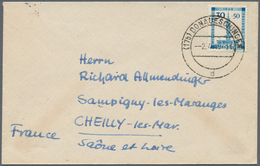 30 +50
(17b) DONAUESCHINGEN
d
Herrn
Richard Allmendinger
Sampigny-les-Maranges
CHEILLY-les-Mar.
Saône et Loire
France